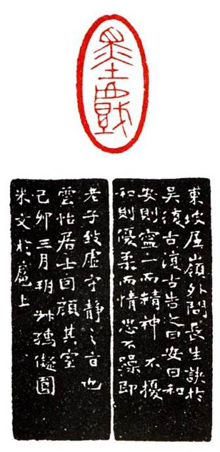 墨戲
東坡居嶺外問長生訣於
吳復古復古告之曰安曰和
安則寧一而精神不擾
和則優柔而情不躁即
老子致虛守靜之旨也
雲怡居士因顏其室
己卯三月圓
文於上